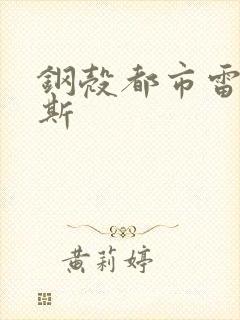 鋼殼都市雷
斯
黃莉婷